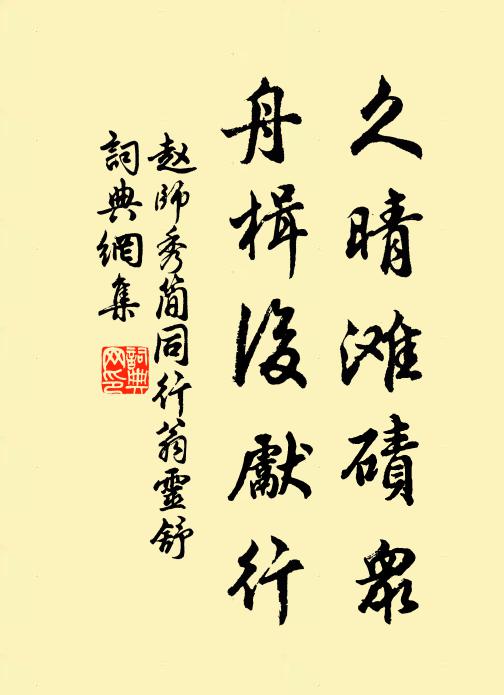 久晴滩磧衆
舟楫後獻行
赵師秀简同行翁靈舒
詞典網集
詞典
网印